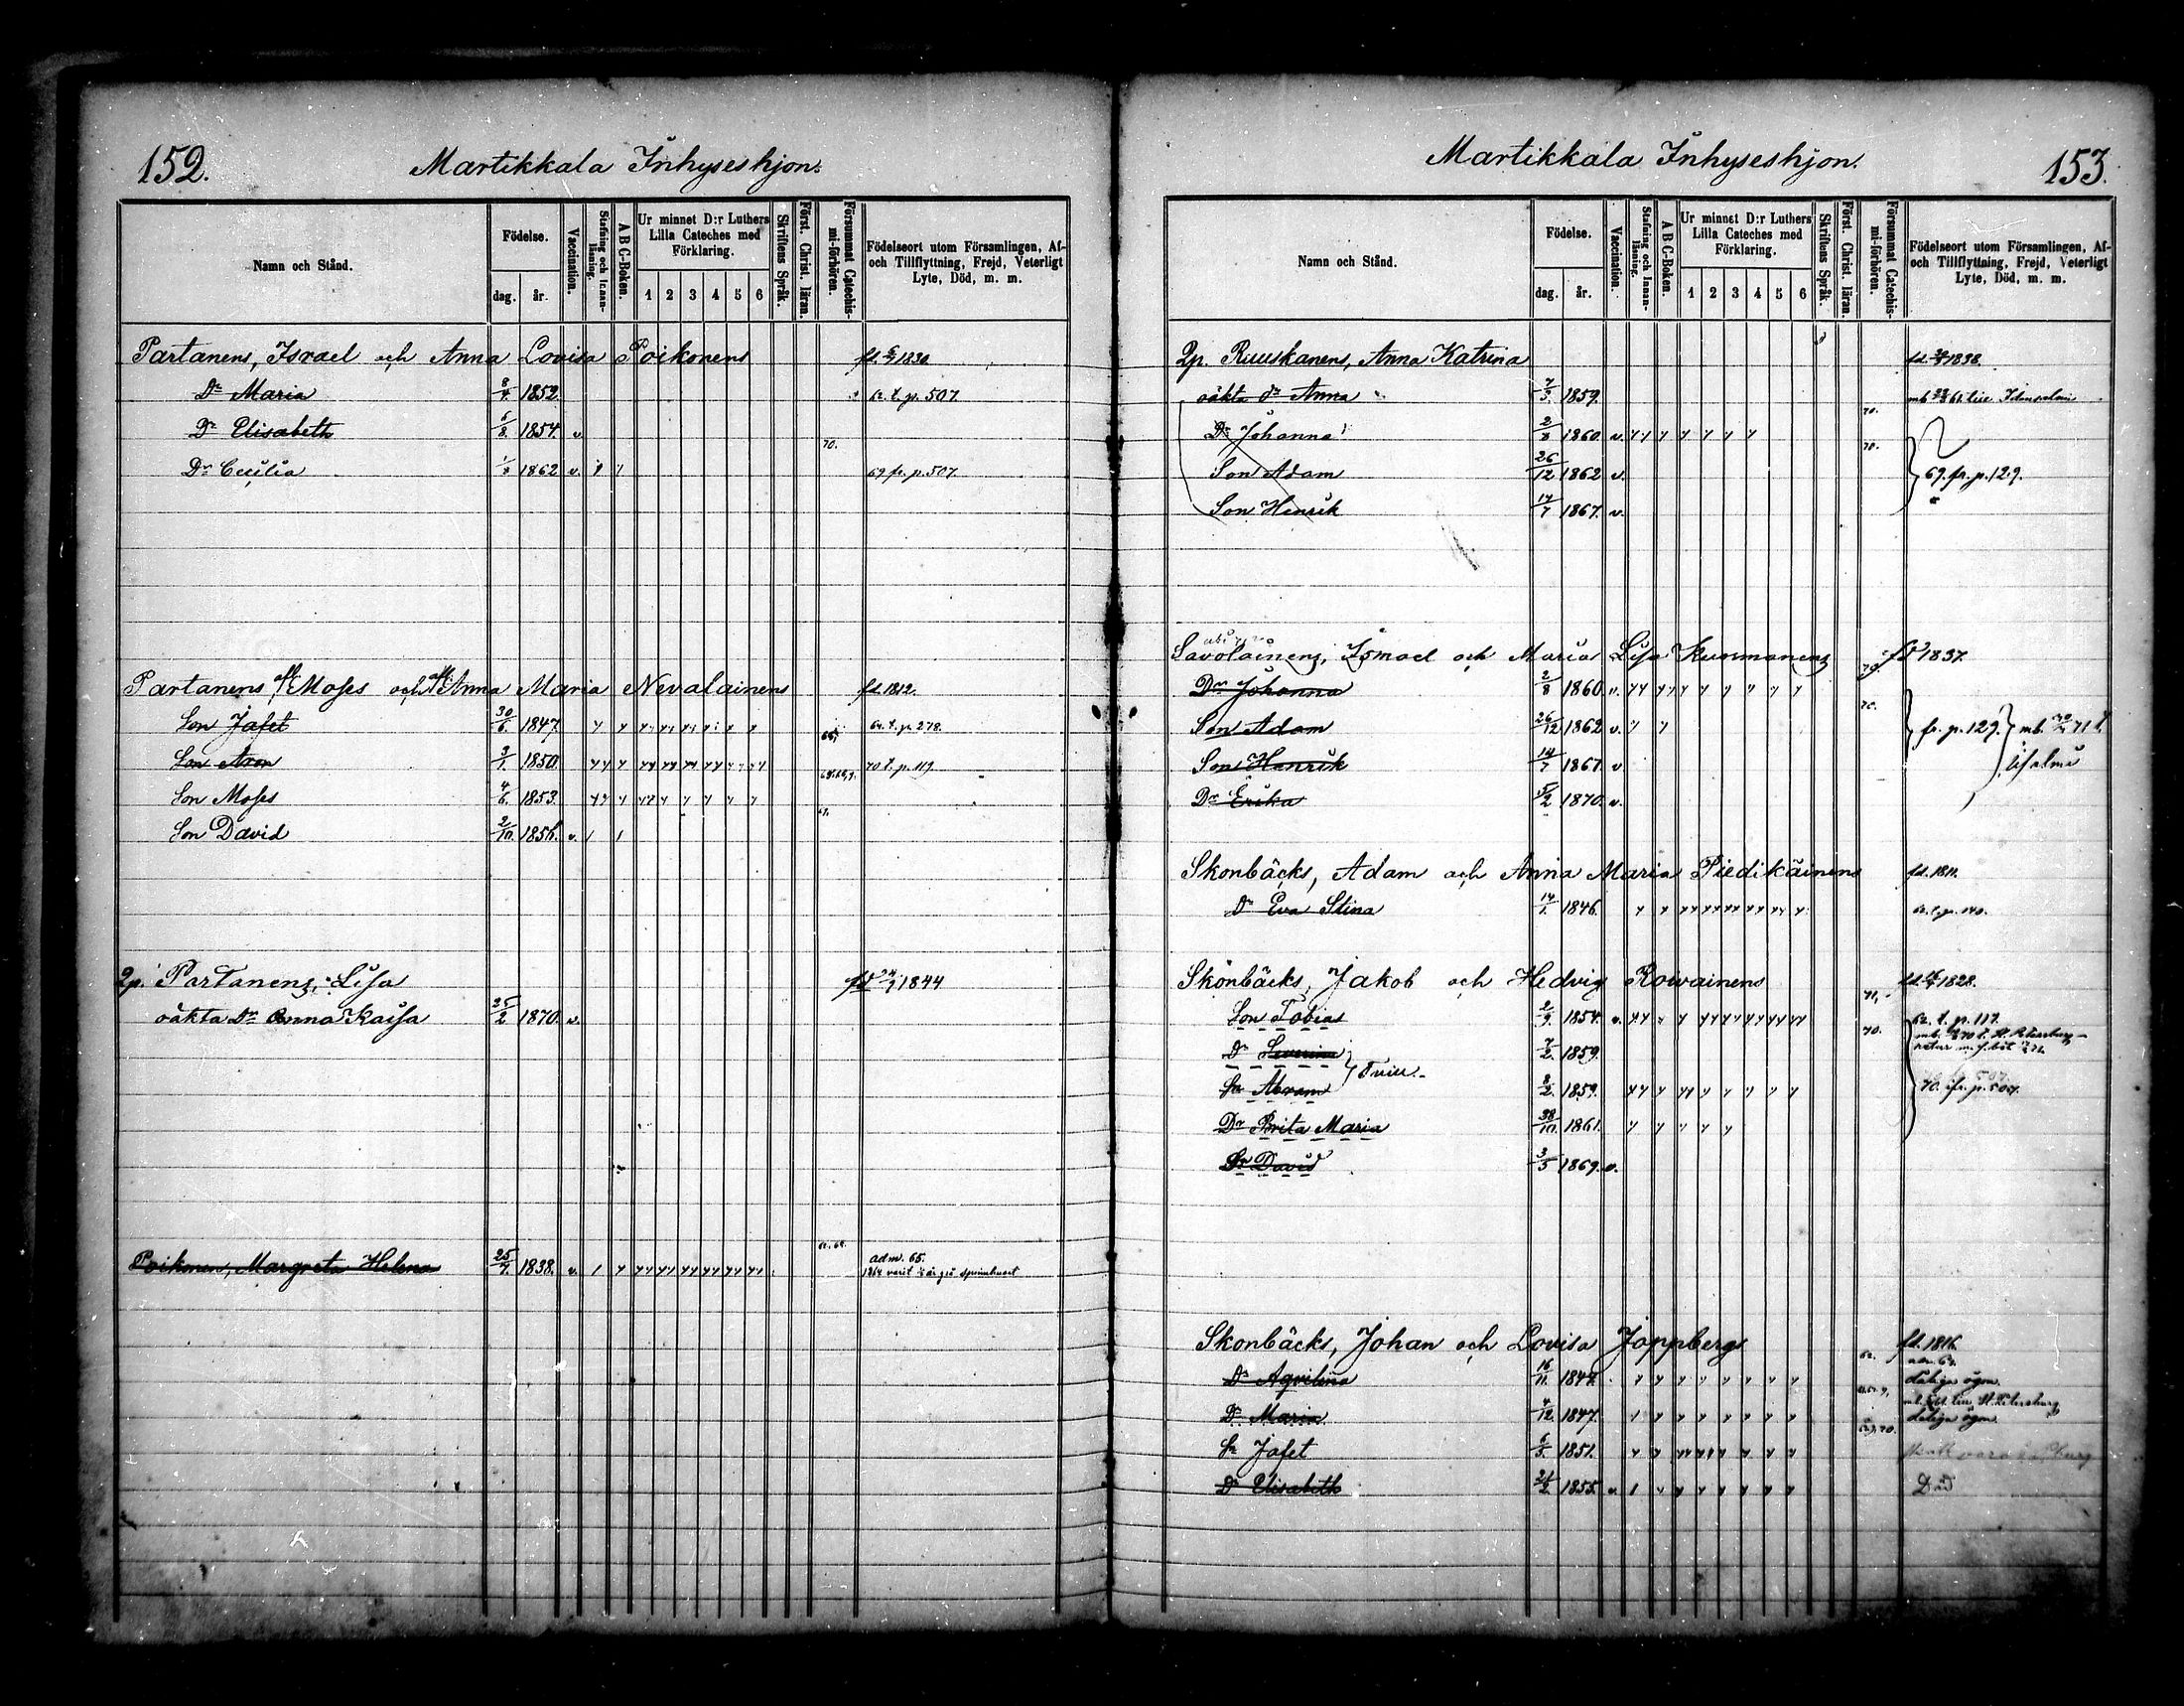 152.
Martikkala Inhyseshjon.
Namn och Stånd.
Födelse.
dag. år.
Vaccination.
Stafning och Innanläsning.
A B C-Boken.
Ur minnet D:r Luthers Lilla Cateches med Förklaring.
1 2 3 4 5 6
Skriftens Språk.
Först. Christ. läran.
Försummat Catechismi-förhören.
Födelseort utom Församlingen, Af- och Tillflyttning, Frejd, Veterligt Lyte, Död, m. m.
Partanens, Israel och Anna Lovisa Poikonens 1830
Dr Maria 8/4 1852 t. p. 507.
Dr Elisabeth 5/8. 1854. v.
70.
Dr Cecilia 1862 v. 69 fr. p. 507.
Partanens Moses och Anna Maria Nevalainens fd. 1812.
Son Jafet 30/6. 1847. t. p. 278.
Son Aron 3/1. 1850. 70 t. p. 119
Son Moses 4/6. 1853.
Son David 2/10. 1856. v.
2p. Partanens, Lisa 1844
oäkta Dr Anna Kaisa 25/2 1870. v.
Poikonen, Margreta Helena 25/7. 1838. v. adm. 65.
153.
Martikkala Inhyseshjon.
Namn och Stånd.
Födelse.
dag. år.
Vaccination.
Stafning och Innanläsning.
A B C-Boken.
Ur minnet D:r Luthers Lilla Cateches med Förklaring.
1 2 3 4 5 6
Skriftens Språk.
Först. Christ. läran.
Försummat Catechismi-förhören.
Födelseort utom Församlingen, Af- och Tillflyttning, Frejd, Veterligt Lyte, Död, m. m.
2p. Ruuskanens, Anna Katrina 1838.
oäkta dr Anna 7/3. 1859.
70.
Dr Johanna 2/8 1860 v.
70.
Son Adam 26/12. 1862 v. 69. fr. p. 129.
Son Henrik 14/7 1867. v.
Savolainens, Ismael och Maria Lisa Kunmanens 1837.
70.
Dr Johanna 2/8 1860 v.
70.
Son Adam 26/12 1862 v. fr. p. 129.
Son Henrik 14/7 1867. v
Dr Erika 1870. v.
Skonbäcks, Adam och Anna Maria Piedikäinens fd. 1811.
Dr Eva Stina 14/1. 1846. t. p. 140.
Skönbäcks, Jakob och Hedvig Rowainens 1828.
71,
Son Tobias 2/9. 1854. v. 62. t. p. 117.
70.
Dr Severina 7/2. 1859.
Sn Abram 1859. 70. fr. p. 507.
Dr Brita Maria 1861.
Sn David 3/5 1869. v.
Skonbäcks, Johan och Lovisa Joppbergs fd. 1816.
Dr Aqvilina 16/11. 1847. dåliga ögon.
Dr Maria 4/12 1847. dåliga ögon
Sn Jafet 1851.
Dr Elisabeth 1855. v. Död